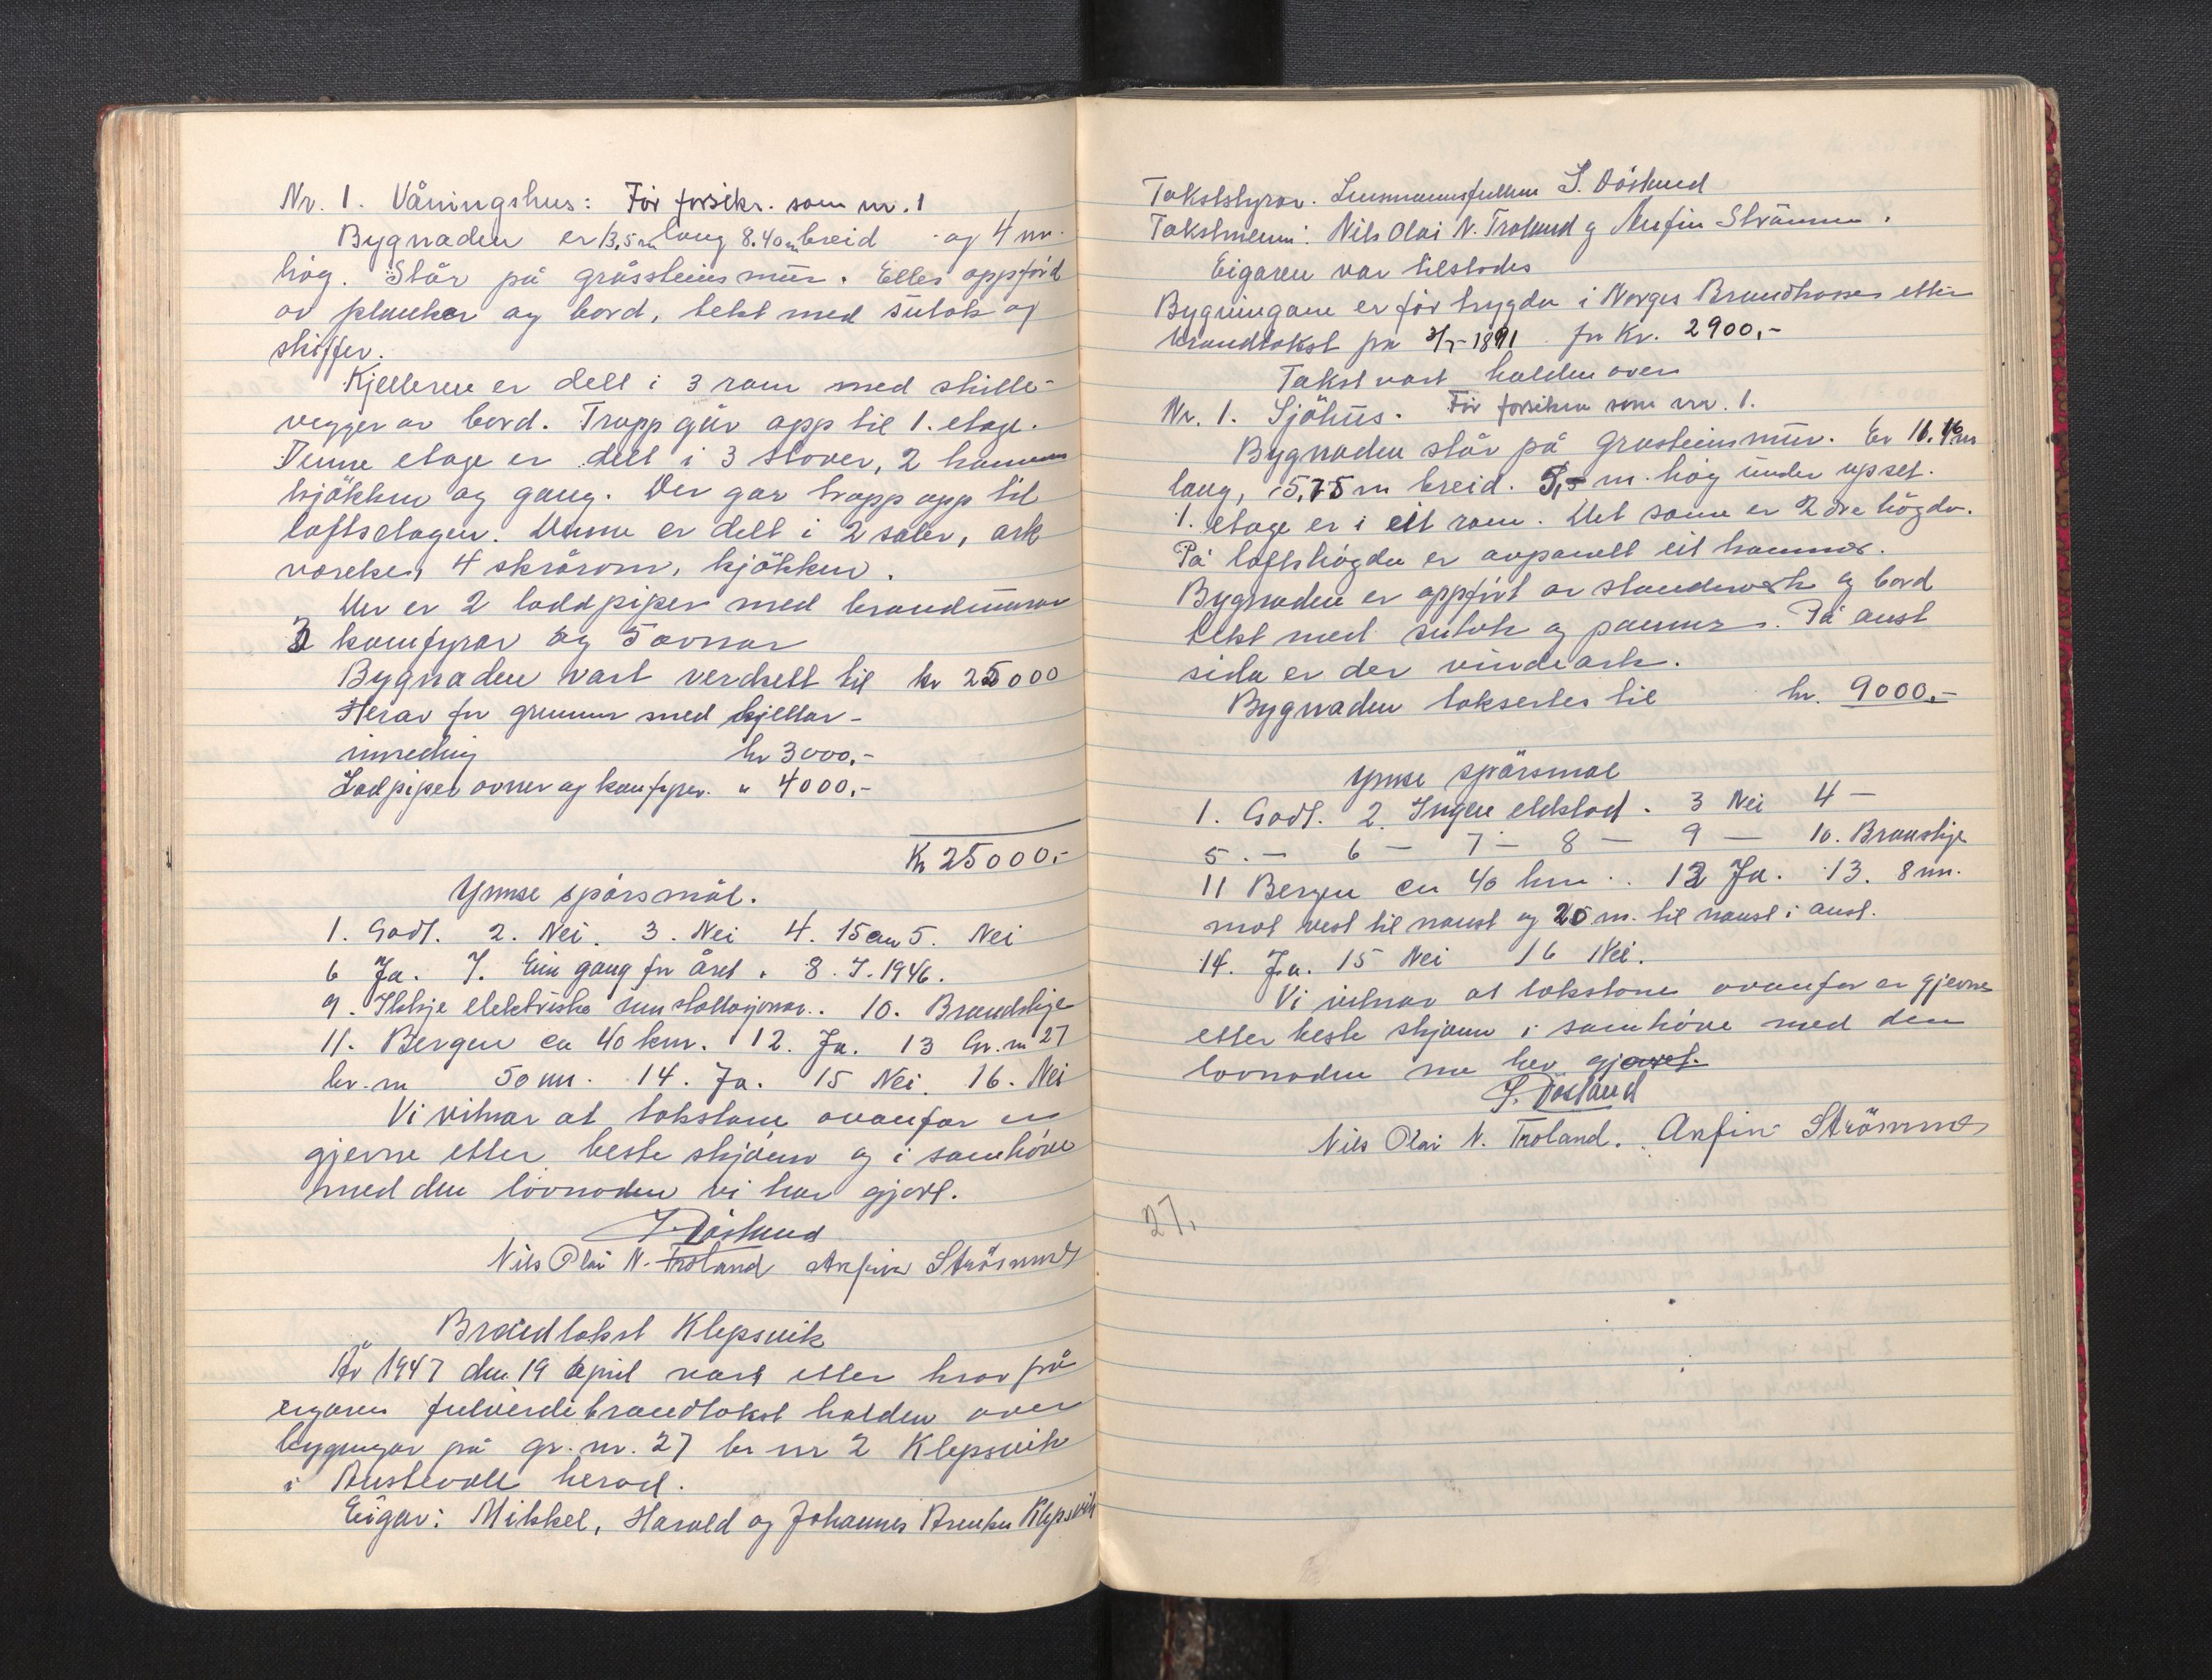 Nr. 1. Våningshus: Før forsikr. som nr. 1
Bygnaden er 13,5 m lang 8.40 m breid og 4 m.
høg. Står på gråsteinsmur. Elles oppförd
av planker og bord, tekt med sutak og
skiffer.
Kjelleren er delt i 3 rom med skille-
vegger av bord. Trapp går opp til 1. etage.
Denne etage er delt i 3 stover, 2 kammer
kjökken og gang. Der gar trapp opp til
loftsetagen. Denne er delt i 2 saler, ark
vœrelse, 4 skrårom, kjökken.
Der er 2 loddpiper med brandmurar
3 komfyrar og 5 ovnar
Bygnaden vart verdsett til kr 25000
Herav for grunnur med kjellar-
inreding kr 3000,-
Lodpiper ovner og komfyrer. " 4000,-
Kr 25000,-
Ymse spörsmål.
1. Godt. 2. Nei. 3. Nei 4. 15 cm 5. Nei
6 Ja. 7. Ein gang for året. 8. 7. 1946.
9. Ikkje elektriske innstallasjonar. 10. Brandskje
11. Bergen ca 40 km. 12. Ja. 13 Gr. nr 27
br. nr 50 m. 14. Ja. 15 Nei. 16. Nei
Vi vitnar at takstane ovanfor er
gjevne etter beste skjönn og i samhöve
med den lovnaden vi har gjort.
S. Döstund
Nils Olai N. Troland Arfin Strömme
Brandtakst Klepsvik
År 1947 den 19 april vart etter krav frå
eigaren fulverdibrandtakst halden over
bygningar på gr. nr. 27 br nr 2 Klepsvik
i Austevoll herad.
Eigar: Mikkel, Harald og Johannes Klepsvik
Takststyrar. Lensmannsfullm S. Döstund
Takstmenn: Nils Olai N. Troland og Arfin Strömme.
Eigaren var tilstades
Bygningane er för trygda i Norges Brandkasse etter
brandtakst frå 1891 for Kr. 2900,-
Takst vart halden over
Nr. 1. Sjöhus. För forsikra som nr. 1.
Bygnaden står på Gråsteinsmur. Er 16.
lang, 5,75 m breid. m. høg under upset.
1. etage er i eit rom. Det same er 2 dre högda.
På loftshögda er avpanelt eit kammer.
Bygnaden er oppfört av standerverk og bord
tekt med sutak og panner. På aust
sida er der vindeark.
Bygnaden taksertes til kr. 9000,-
Ymse spörsmål
1. Godt. 2. Ingen eldstad. 3 Nei 4 —
5. — 6 — 7 — 8 — 9 — 10. Brannskje
11 Bergen ca 40 km. 12 Ja. 13. 8 m.
mot vest til naust og 25 m. til naust i aust.
14. Ja. 15 Nei 16 Nei.
Vi vitnar at takstane ovanfor er gjevne
etter beste skjönn i samhöve med den
lovnaden me hev gjevet.
S. Döstund
Nils Olai N. Troland. Arfin Strömme
27.